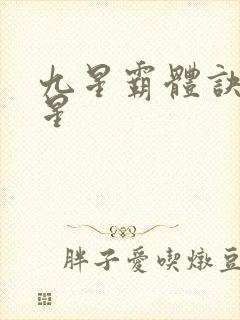 九星霸體訣
星
胖子愛喫燉豆